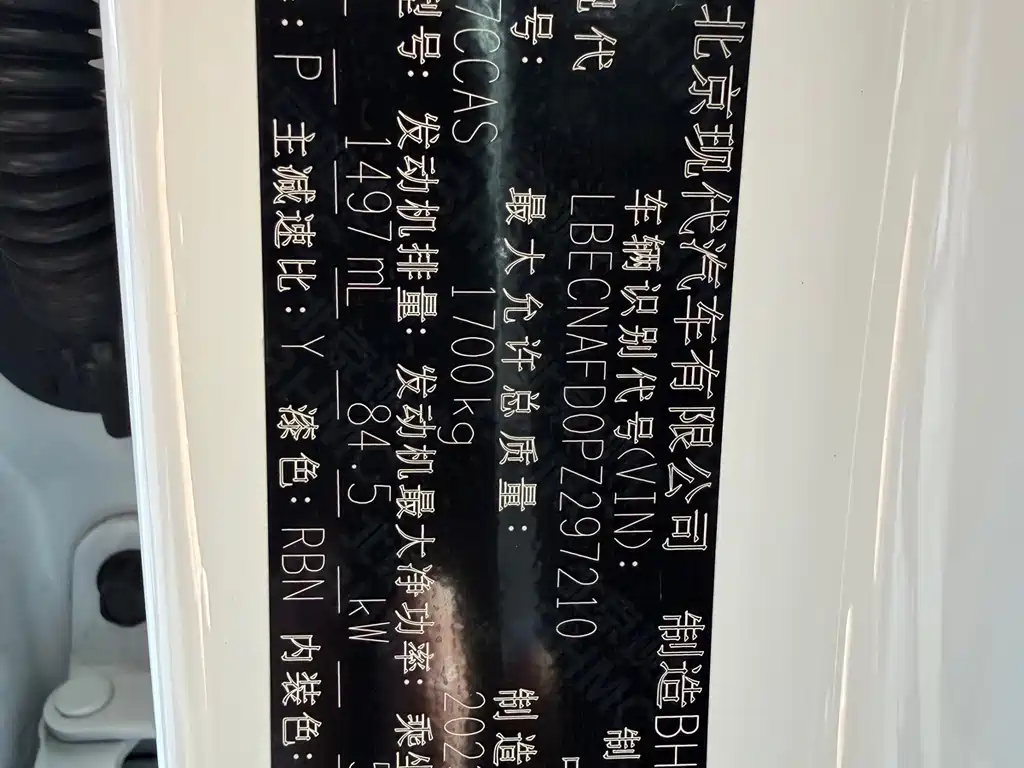 北京现代汽车有限公司 制造BH
车辆识别代号(VIN): 制
现代 LBECNAFD0PZ297210
号: 最大允许总质量: 制造
7CCAS 1700kg 202
型号: 发动机排量: 发动机最大净功率: 乘坐
1497mL 84.5 kW
: P 主减速比: Y 漆色: RBN 内装色: